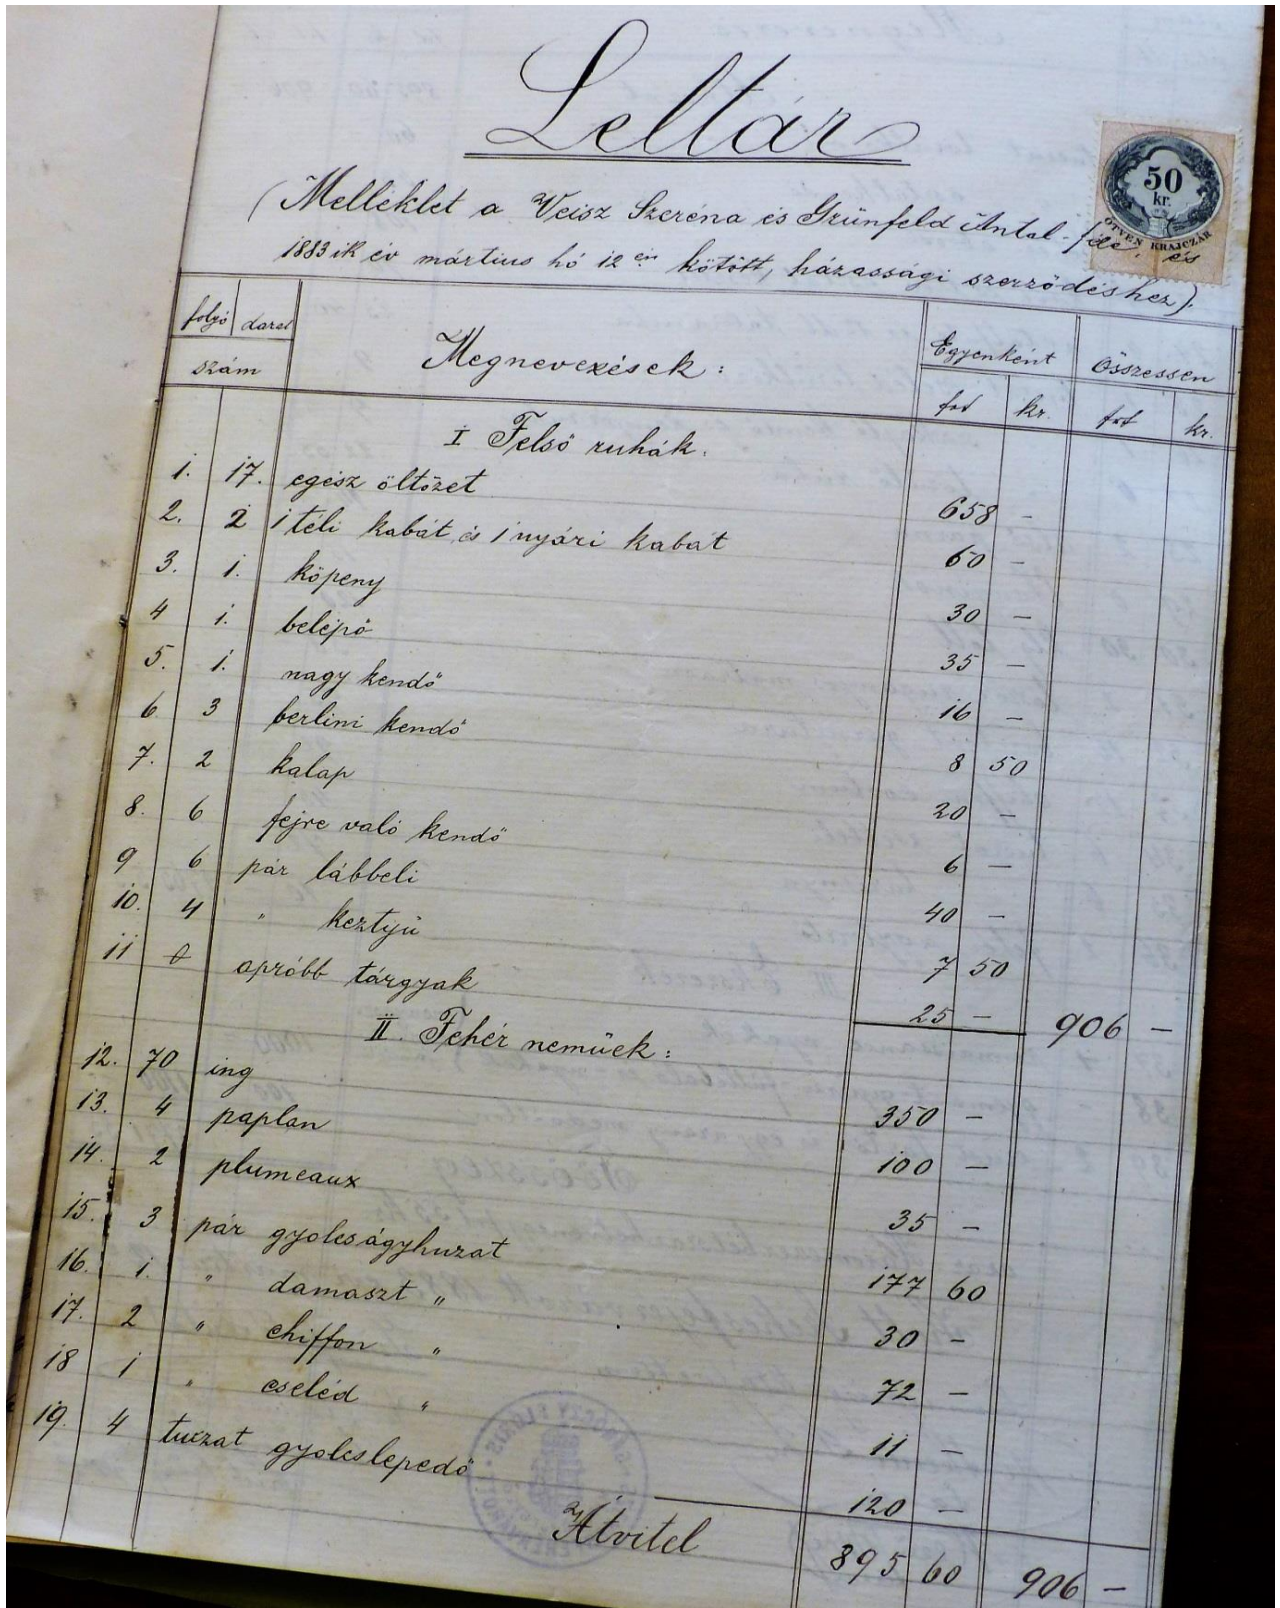 Leltár
50
kr.
ÖTVEN KRAJCZÁR
(Melléklet a Veisz Szeréna és Grünfeld Antal-féle, és
1883ik év március hó 12én kötött, házassági szerződéshez).
folyó darab Megnevezések: Egyenként Összessen
szám frt kr. frt kr.
I Felső ruhák.
1. 17. egész öltözet 658 —
2. 2 1 téli kabát és 1 nyári kabát 60 —
3. 1. köpeny 30 —
4 1. belépő 35 —
5. 1. nagy kendő 16 —
6 3 berlini kendő 8 50
7. 2 kalap 20 —
8. 6 fejre való kendő 6 —
9 6 pár lábbeli 40 —
10. 4 " keztyü 7 50
11 apróbb tárgyak 25 — 906 —
II. Fehér neműek:
12. 70 ing 350 —
13. 4 paplan 100 —
14. 2 plumeaux 35 —
15. 3 pár gyolcságyhuzat 177 60
16. 1. " damaszt " 30 —
17. 2 " chiffon " 72 —
18 1 " cseléd " 11 —
19. 4 tuczat gyolcslepedő 120 —
Átvitel 895 60 906 —